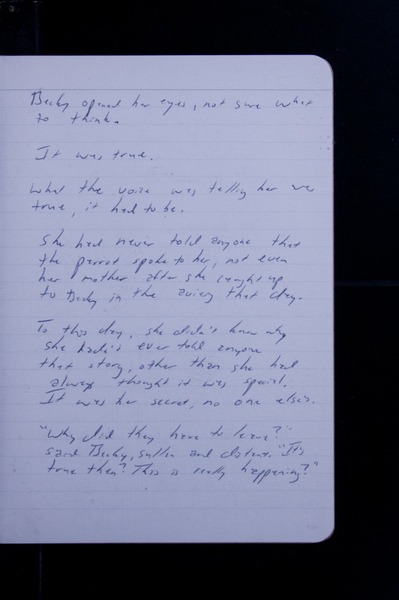 Becky opened her eyes, not sure what
to think.
It was true.
What the voice was telling her was
true, it had to be.
She had never told anyone that
the parrot spoke to her, not even
her mother after she caught up
to Becky in the aviary that day.
To this day, she didn't know why
she hadn't ever told anyone
that story, other than she had
always thought it was special.
It was her secret, no one else's.
"Why did they have to leave?"
said Becky, sullen and distant. "It's
true then? This is really happening?"